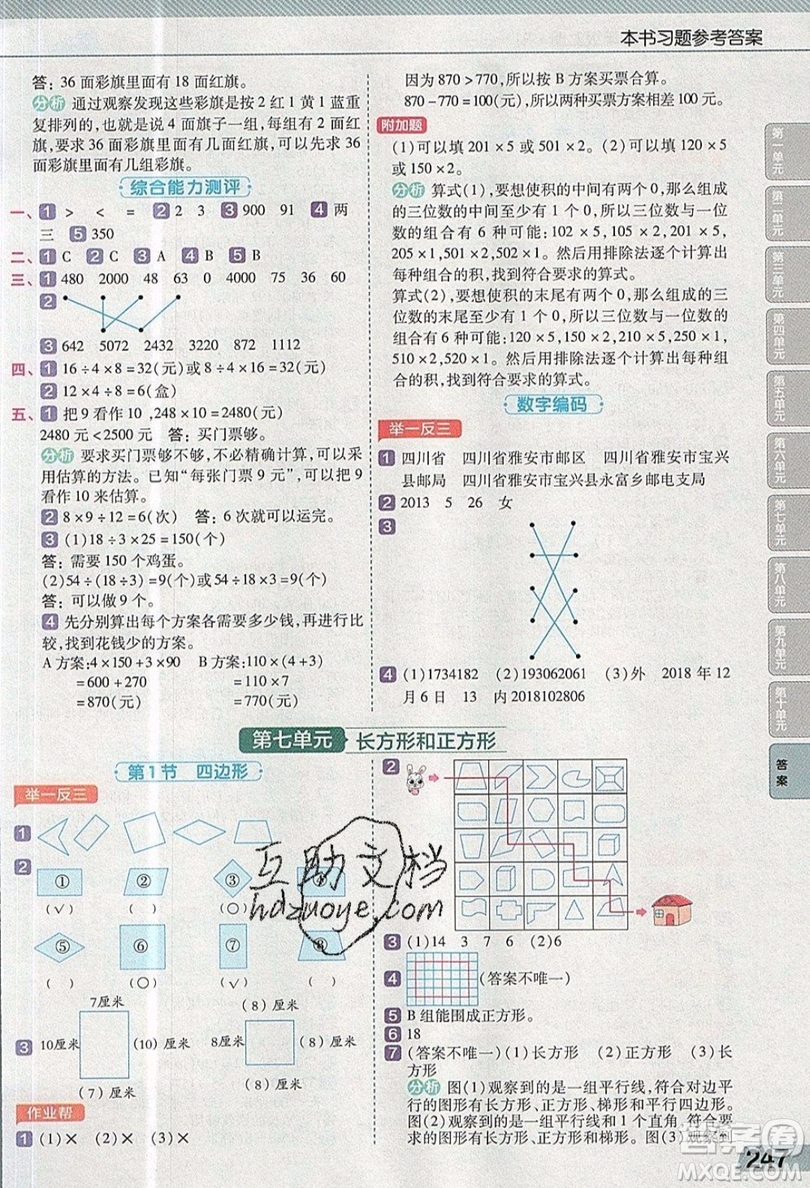 本书习题参考答案
答：36 面彩旗里面有 18 面红旗。
分析 通过观察发现这些彩旗是按 2 红 1 黄 1 蓝重
复排列的，也就是说 4 面旗子一组，每组有 2 面红
旗，要求 36 面彩旗里面有几面红旗，可以先求 36
面彩旗里面有几组彩旗。
综合能力测评
一、1 > < = 2 2 3 3 900 91 4 两
三 5 350
二、1 C 2 C 3 A 4 B 5 B
三、1 480 2000 48 63 0 4000 75 36 60
2
3 642 5072 2432 3220 2331 1112
四、1 16÷4×8=32(元)或 8÷4×16=32(元)
2 12×4÷8=6(盒)
五、1 把 9 看作 10 ,248×10=2480(元)
2480 元<2500 元 答：买门票够。
分析 要求买门票够不够，不必精确计算，可以采
用估算的方法。已知“每张门票 9 元”，可以把 9
看作 10 来估算。
2 8×9÷12=6(次) 答：6 次就可以运完。
3 (1)18÷3×25=150(个)
答：需要 150 个鸡蛋。
(2)54÷(18÷3)=9(个)或 54÷18×3=9(个)
答：可以做 9 个。
4 先分别算出每个方案各需要多少钱，再进行比
较，找到花钱少的方案。
A 方案:4×150+9×30 B 方案:110×(4+3)
=600+270 =110×7
=870(元) =770(元)
因为 870>770，所以按 B 方案买票合算。
870-770=100(元)，所以两种买票方案相差 100 元。
附加题
(1)可以填 201×5 或 501×2。(2)可以填 250×2
或 150×2。
分析 算式(1)，要想使积的中间有两个 0，那么组成
的三位数的中间至少有 1 个 0，所以三位数与一位
数的组合有 6 种可能: 102×5, 105×2, 201×5,
205×1,501×2,502×1。然后用排除法逐个计算出
每种组合的积，找到符合要求的算式。
算式(2)，要使积的末尾有两个 0，那么组成的三
位数的末尾至少有 1 个 0，所以三位数与一位数的
组合有 6 种可能: 120×5, 150×2, 210×5, 250×1,
510×2,520×1。然后用排除法逐个计算出每种组
合的积，找到符合要求的算式。
数字编码
举一反三
1 四川省 四川省雅安市邮区 四川省雅安市宝兴
县邮局 四川省雅安市宝兴县永富乡邮电支局
2 2013 5 26 女
3
4 (1)1734182 (2)193062061 (3)外 2018 年 12
月 6 日 13 内 2018102806
第七单元 长方形和正方形
第 1 节 四边形
举一反三
1
2 ① ② ③
(√) (○)
⑤ ⑥ ⑦ ⑧
( ) ( ) (√) (○)
7厘米 (8)厘米
3 10厘米 (10)厘米 8厘米 (8)厘米
(7)厘米 (8)厘米
作业帮
1 (1)× (2)× (3)×
2
3 (1)14 3 7 6 (2)6
4 (答案不唯一)
5 B 组能围成正方形。
6 18
7 (答案不唯一)(1)长方形 (2)正方形 (3)长
方形
分析 图(1)观察到的是一组平行线，符合对边平
行的图形有长方形、正方形、梯形和平行四边形。
图(2)观察到的是一组平行线和 1 个直角，符合要
求的图形有长方形、正方形和梯形。图(3)观察到
247
第一单元
第二单元
第三单元
第四单元
第五单元
第六单元
第七单元
第八单元
第九单元
第十单元
答案
互助文档
hdzuoye.com
答案圈
MXQE.COM